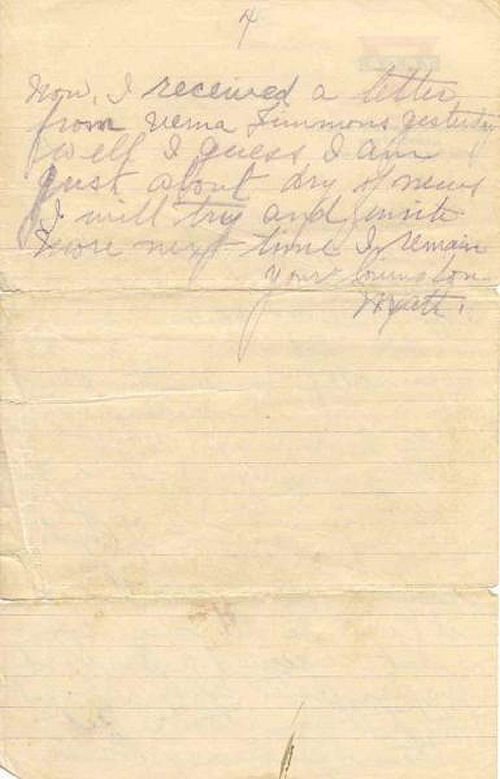 4
Now, I received a letter
from Verna Simmons yesterday
well I guess I am
just about dry of news
I will try and write
more next time I remain
your loving son
Wyatt.